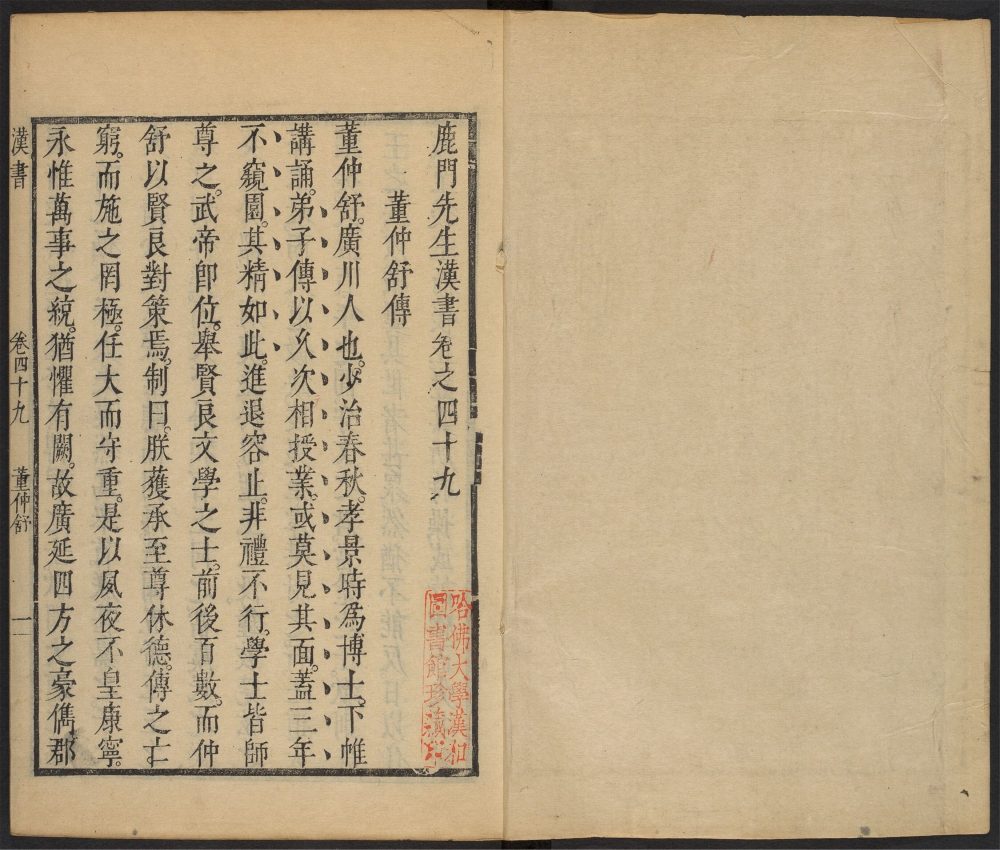 鹿門先生漢書卷之四十九
董仲舒傳
董仲舒。廣川人也。少治春秋。孝景時爲博士。下帷
講誦。弟子傳以久次相授業。或莫見其面。蓋三年
不窺園。其精如此。進退容止。非禮不行。學士皆師
尊之。武帝即位。舉賢良文學之士。前後百數。而仲
舒以賢良對策焉。制曰。朕獲承至尊休德。傳之亡
窮。而施之罔極。任大而守重。是以夙夜不皇康寧。
永惟萬事之統。猶懼有闕。故廣延四方之豪儁郡
漢書 卷四十九 董仲舒 一
哈佛大學漢和
圖書館珍藏印